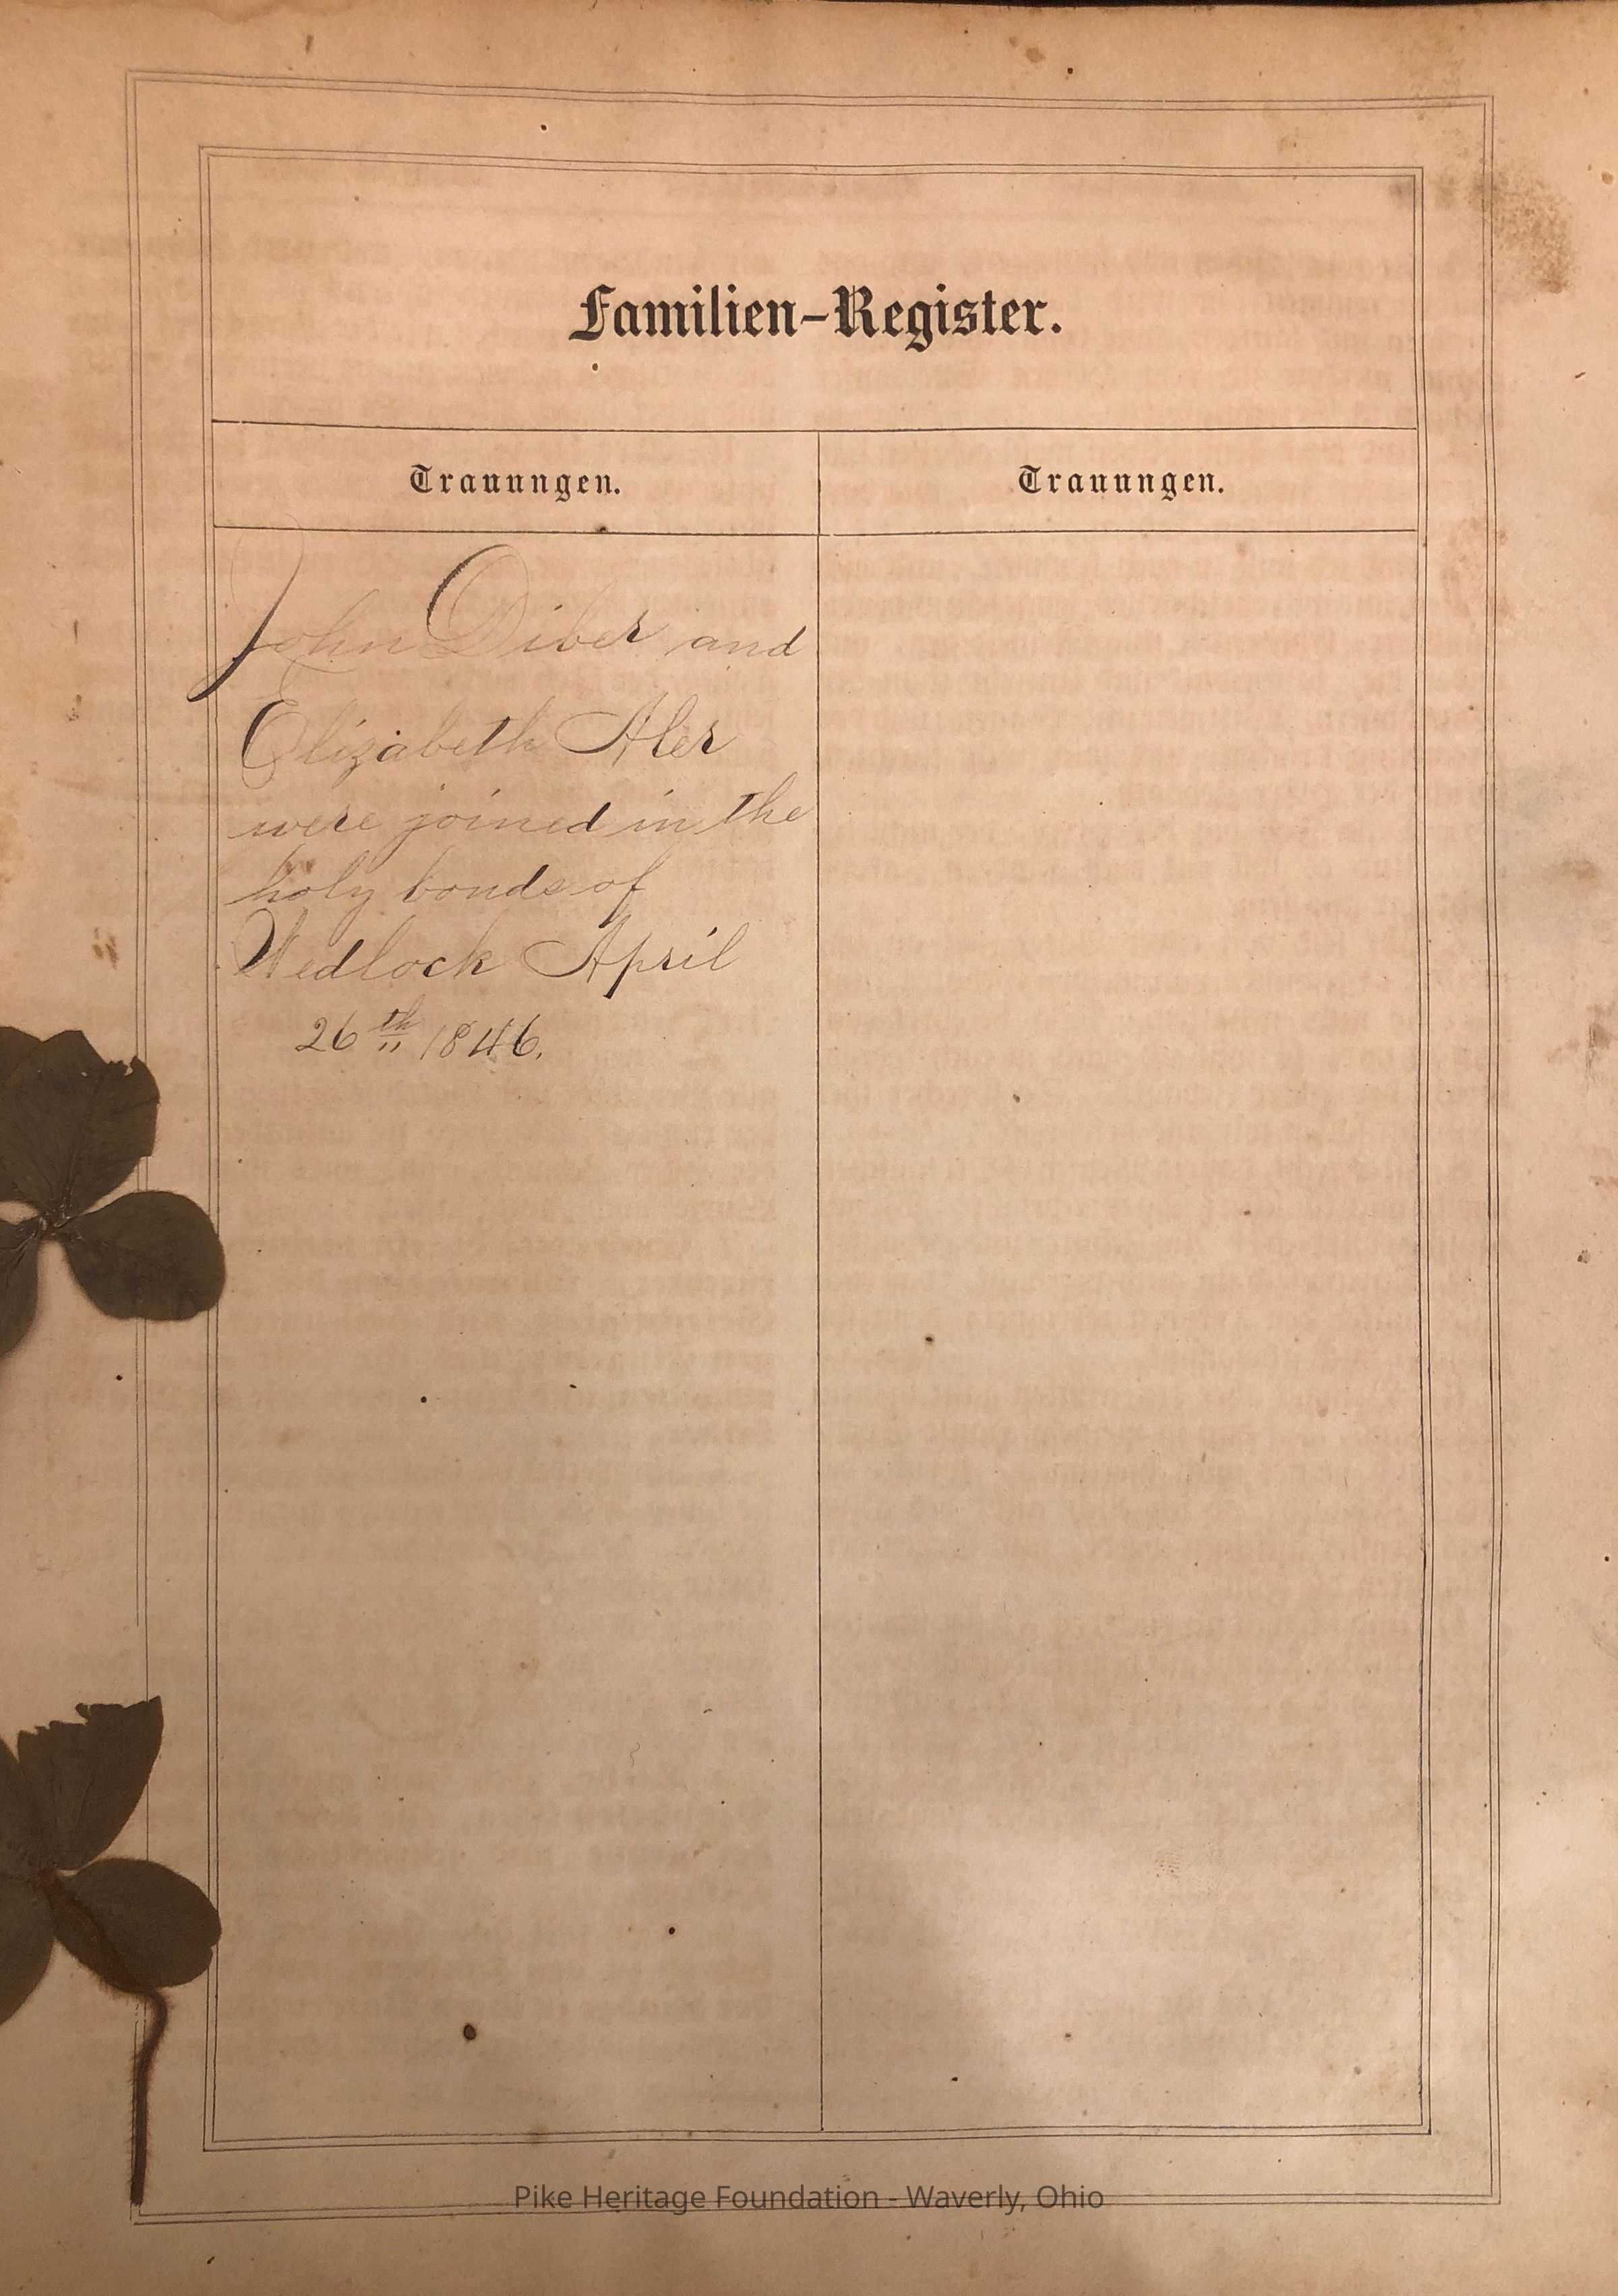 Familien-Register.
Trauungen.
Trauungen.
John Diver and
Elizabeth Aler
were joined in the
holy bonds of
Wedlock April
26th 1846.
Pike Heritage Foundation - Waverly, Ohio